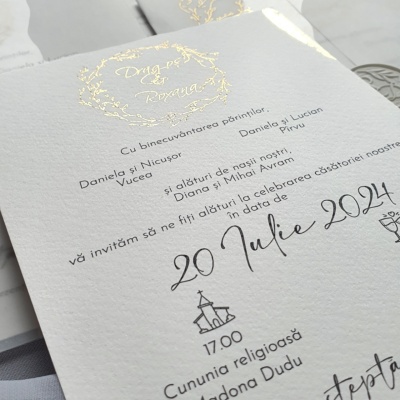 Dragoș
&
Roxana
Cu binecuvântarea părinților,
Daniela și Nicușor
Vucea
Daniela și Lucian
Pîrvu
și alături de nașii noștri,
Diana și Mihai Avram
vă invităm să ne fiți alături la celebrarea căsătoriei noastre
în data de
20 Iulie 2024
17.00
Cununia religioasă
Madona Dudu